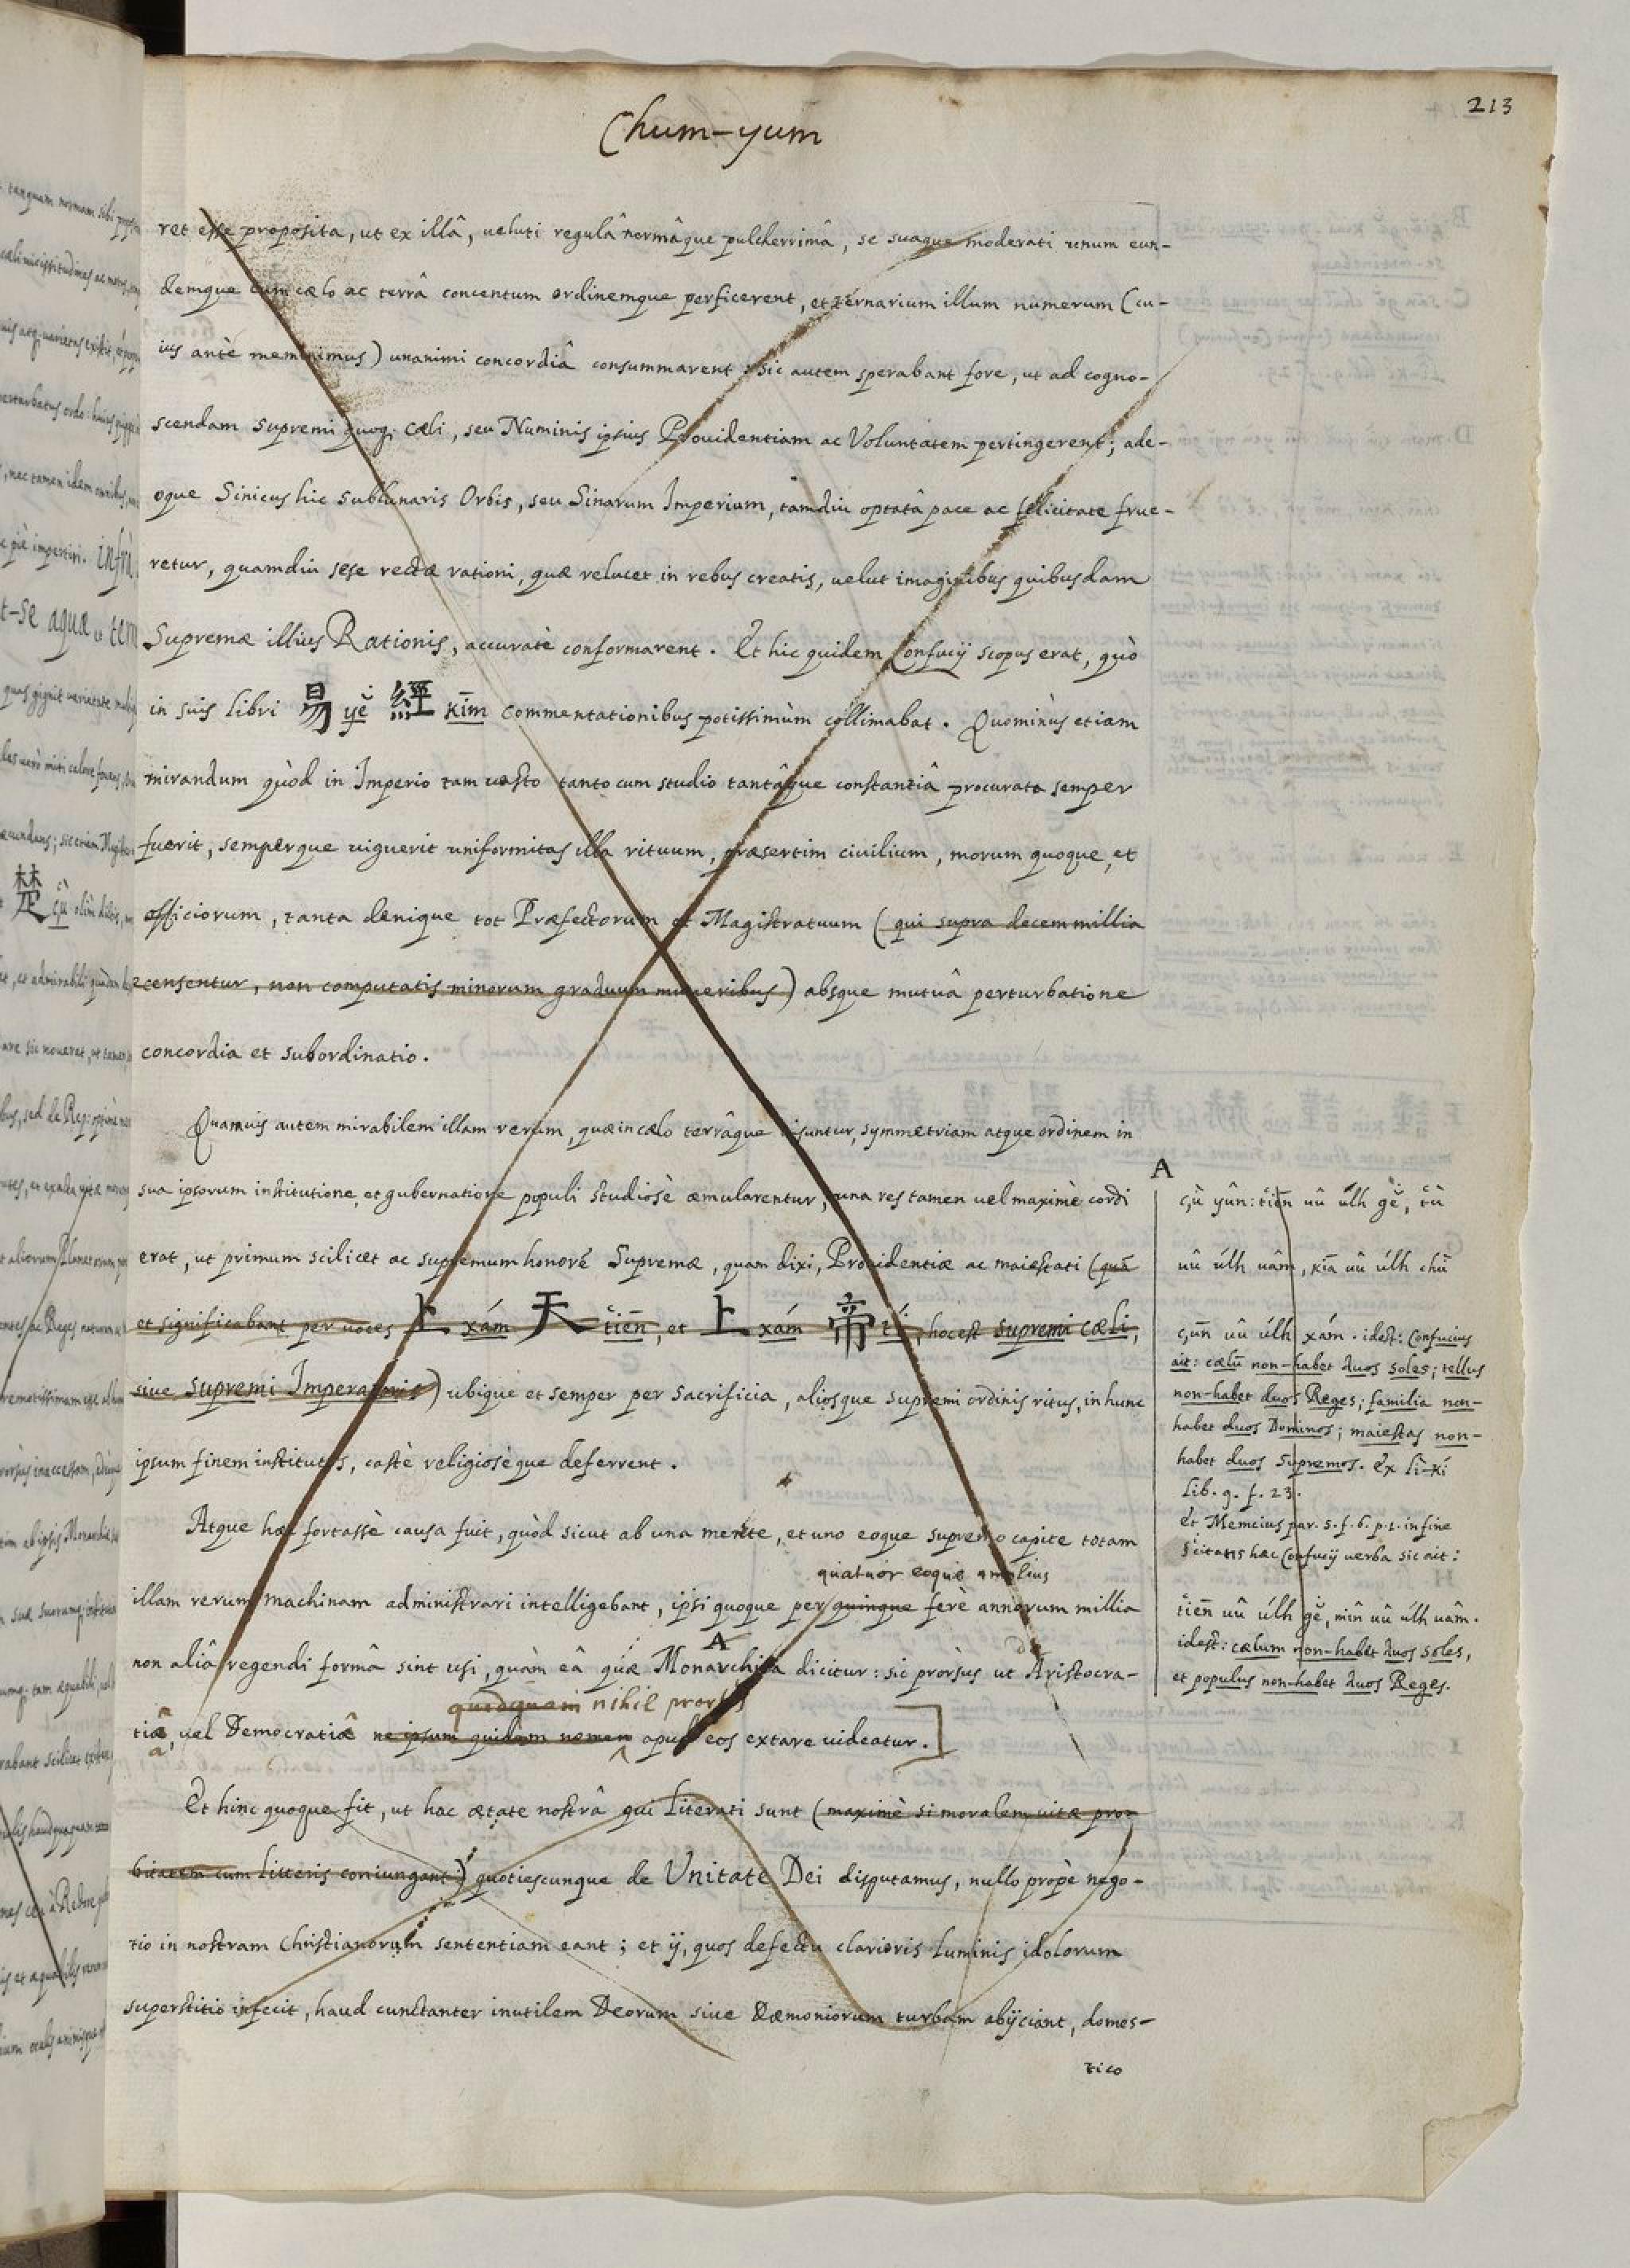 213
Chum-yum
ret esse proposita, ut ex illâ, veluti regulâ normâque pulcherrimâ, se suaque moderati unum eun-
demque cum cælo ac terrâ concentum ordinemque perficerent, et ternarium illum numerum (cu-
ius antè meminimus) unanimi concordiâ consummarent: sic autem sperabant fore, ut ad cogno-
scendam supremi quoq; cæli, seu Numinis ipsius Providentiam ac Voluntatem pertingerent; ade-
oque Sinicus hic sublunaris Orbis, seu Sinarum Imperium, tamdiu optatâ pace ac felicitate frue-
retur, quamdiu sese rectæ rationi, quæ relucet in rebus creatis, velut imaginibus quibusdam
Supremæ illius Rationis, accuratè conformarent. Et hic quidem Confucij scopus erat, quò
in suis libri 易 yĕ 經 kīm commentationibus potissimùm collimabat. Quominùs etiam
mirandum quòd in Imperio tam vasto tanto cum studio tantâque constantiâ procurata semper
fuerit, semperque viguerit uniformitas illa rituum, præsertim civilium, morum quoque, et
officiorum, tanta denique tot Præfectorum et Magistratuum (qui supra decem millia
recensentur, non computatis minorum graduum muneribus) absque mutuâ perturbatione
concordia et subordinatio.
Quamuis autem mirabilem illam rerum, quæ in cælo terrâque visuntur, symmetriam atque ordinem in
sua ipsorum institutione, et gubernatione populi studiosè æmularentur, una res tamen vel maximè cordi
erat, ut primum scilicet ac supremum honorē Supremæ, quam dixi, Providentiæ ac maiestati (quā
et significabant per voces 上 xám 天 tiēn, et 上 xám 帝 tí, hoc est supremi cæli,
sive supremi Imperatoris) ubique et semper per sacrificia, aliosque supremi ordinis ritus, in hunc
ipsum finem institutos, castè religiosèque deferrent.
Atque hæc fortassè causa fuit, quòd sicut ab una mente, et uno eoque supremo capite totam
quatuor eoque amplius
illam rerum machinam administrari intelligebant, ipsi quoque per quinque ferè annorum millia
A
non aliâ regendi formâ sint usi, quàm eâ quæ Monarchica dicitur: sic prorsus ut Aristocra-
quodquam nihil prorsus
tiæ, vel Democratiæ ne ipsum quidem nomen apud eos extare videatur.]
Et hinc quoque fit, ut hac ætate nostrâ qui literati sunt (maximè si moralem vitæ pro-
bitatem cum litteris coniungant) quotiescunque de Unitate Dei disputamus, nullo propè nego-
tio in nostram Christianorum sententiam eant; et ij, quos defectu clarioris luminis idolorum
superstitio infecit, haud cunctanter inutilem Deorum sive Dæmoniorum turbam abijciant, domes-
tico
A
çù yûn: tiēn uû úlh gĕ, tù
uû úlh uâm, kiā uû úlh chù
çūn uû úlh xám. idest: Confucius
ait: cælū non-habet duos soles; tellus
non-habet duos Reges; familia non-
habet duos Dominos; maiestas non-
habet duos Supremos. Ex lì-kí
lib. 9. f. 23.
Et Memcius par. 5. f. 6. p. 1. in fine
citatis hæc Confucij verba sic ait:
tiēn uû úlh gĕ, mîn uû úlh uâm.
idest: cælum non-habet duos soles,
et populus non-habet duos Reges.
楚